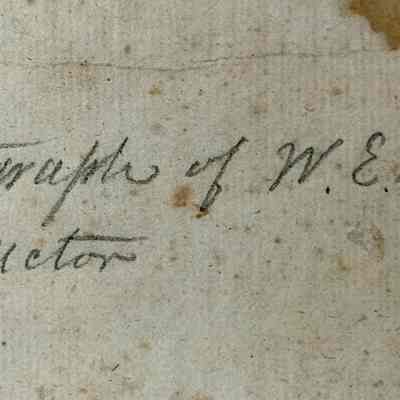 graph of W. E.
uctor